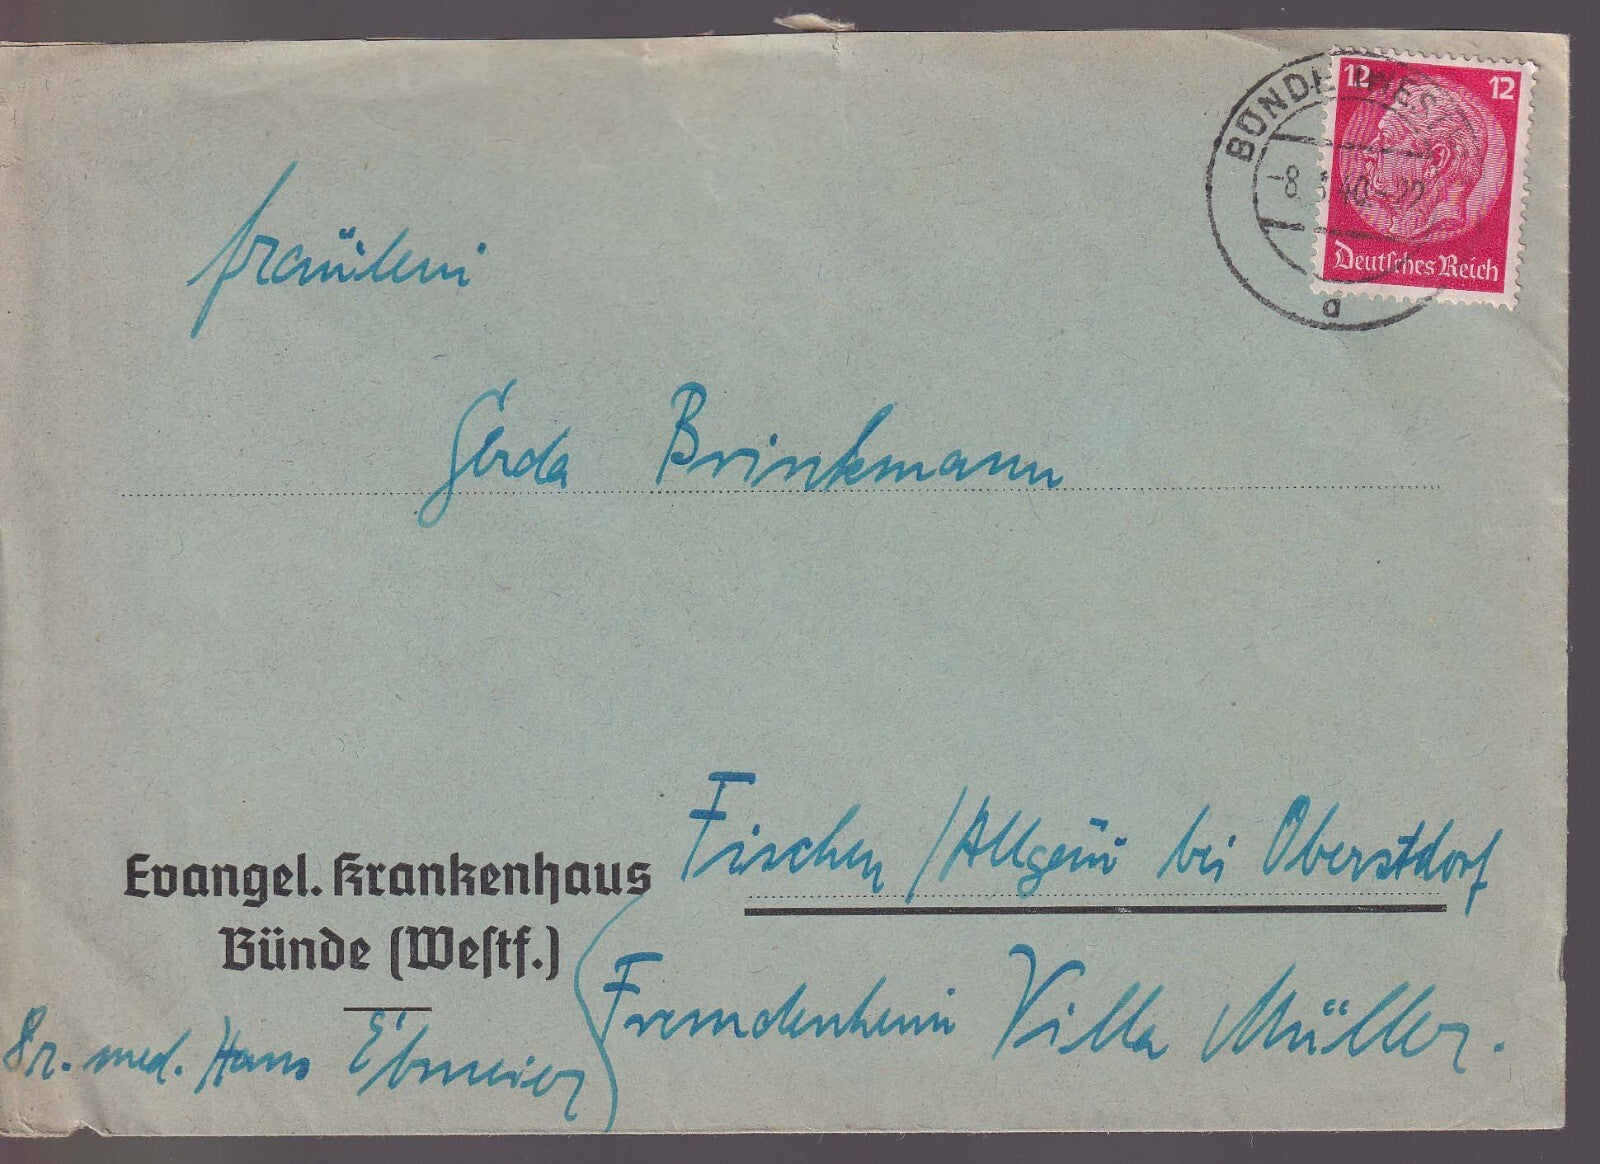 12 12
BÜNDE (WESTF
-8.3.40-22
Deutsches Reich
a
Fräulein
Gerda Brinkmann
Fischen / Allgäu bei Oberstdorf
Evangel. Krankenhaus
Bünde (Westf.)
Fremdenheim Villa Müller.
Dr. med. Hans Ebmeier